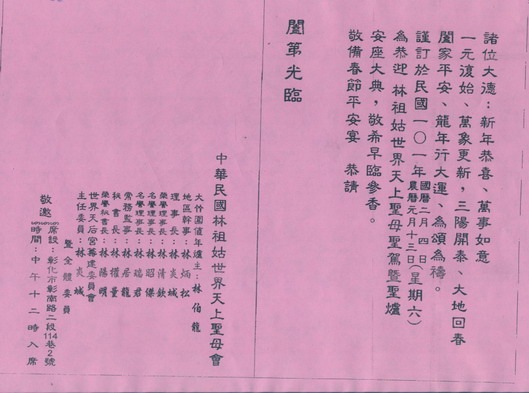 諸位大德：新年恭喜、萬事如意
一元復始、萬象更新，三陽開泰、大地回春
闔家平安、龍年行大運、為頌為禱。
謹訂於民國一０一年國曆二月四日農曆元月十三日(星期六)
為恭迎 林祖姑世界天上聖母聖駕暨聖爐
安座大典，敬希早臨參香。
敬備春節平安宴 恭請
闔第光臨
中華民國林祖姑世界天上聖母會
大仵圍值年爐主：林伯龍
地區幹事：林炳松
理事長：林炎城
榮譽理事長：林清欽
名譽理事長：林昭傑
名譽理事長：林瑞君
常務監事：林居龍
秘書長：林耀量
榮譽秘書長：林陽明
世界天后宮籌建委員會
主任委員：林炎城
暨全體委員
敬邀
席設：彰化市彰南路二段114巷2號
時間：中午十二時入席